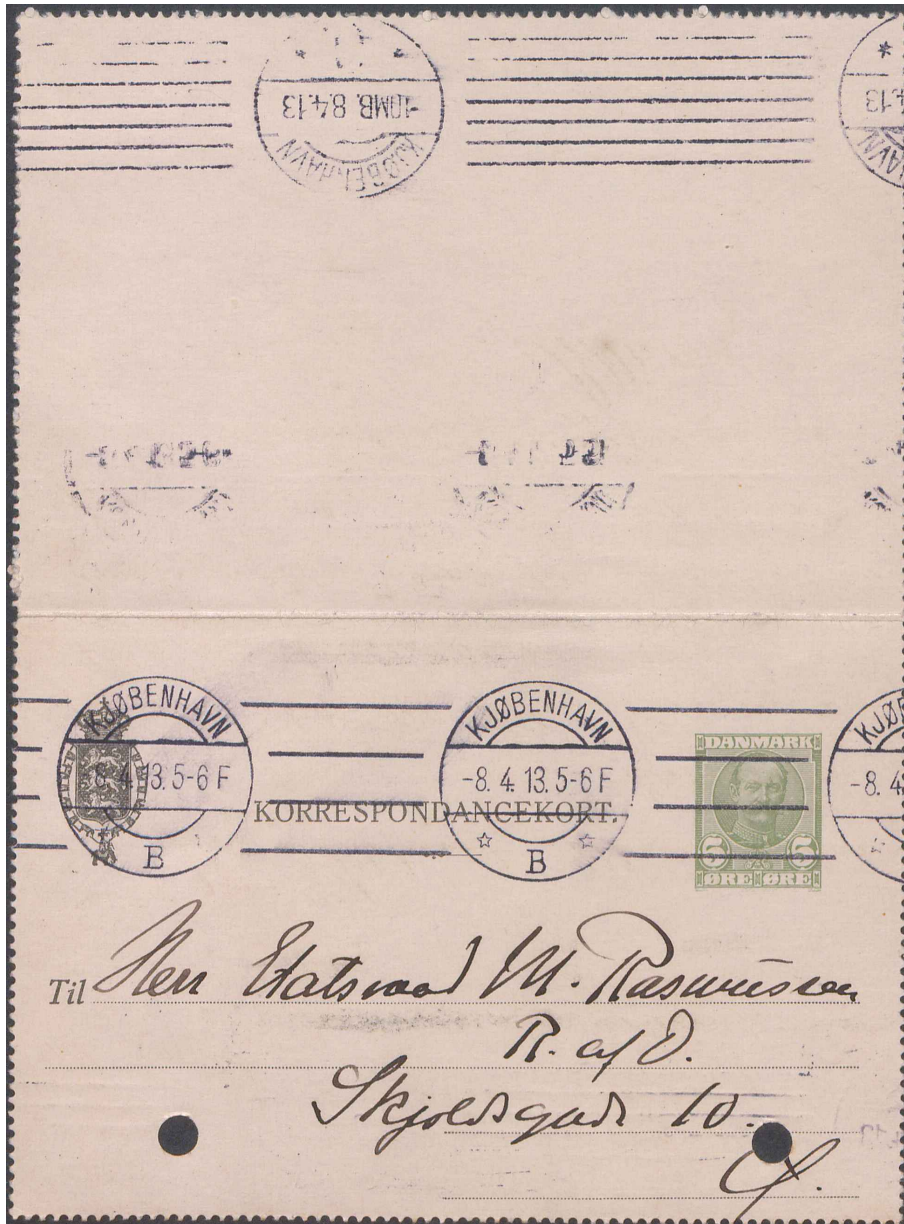 -10MB. 8.4.13
KJØBENHAVN
KJØBENHAVN
8. 4. 13. 5-6 F
B
KJØBENHAVN
-8. 4. 13. 5-6 F
B
KJØB
-8. 4
DANMARK
5 5
ØRE ØRE
KORRESPONDANCEKORT.
Til Herr Etatsraad M. Rasmussen
R. af D.
Skjoldsgade 10.
Ø.